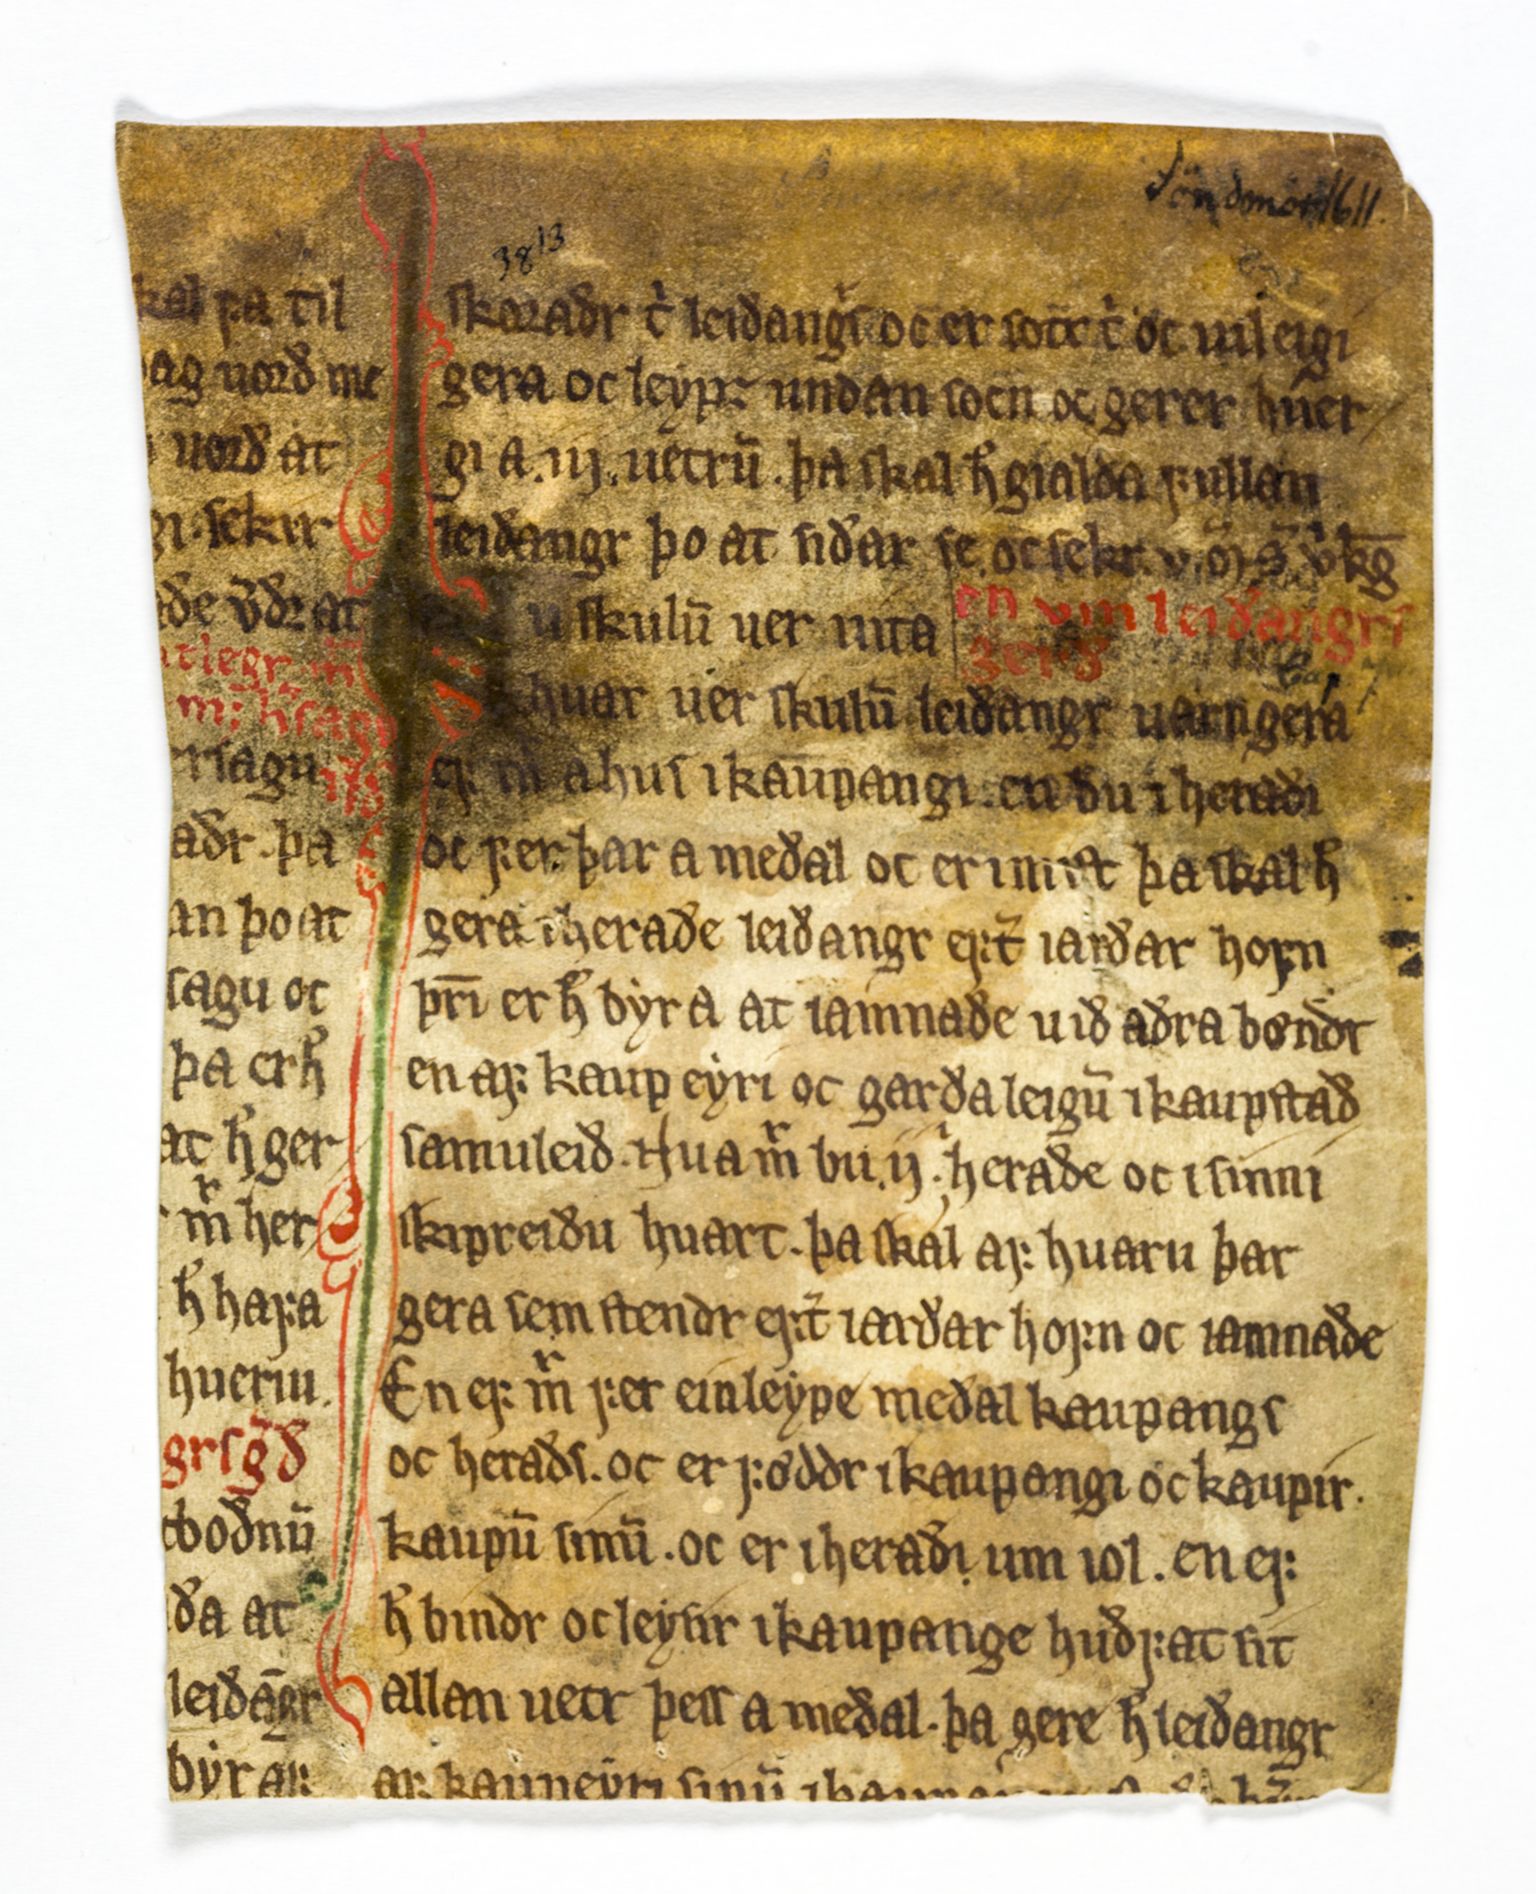 Søndmør 1611.
38 13
skal fa til
ag uorð me
uorð at
gi. sekir
ðe v̄ðr at
sagu
aðr. þa
an þo at
sagu oc
þa er h̄
at h̄ ger
m̄ her
h̄ hafa
hueriu.
grs gð
boðnū
ða at
leiðāgr
byr af
skoraðr t̓ leiðangrs oc er sottr t̓ oc uil eigi
gera oc leypr undan socn oc gerer huer
gi a .iij. uetrū. þa skal h̄ gialda fullan
leiðangr þo at siðar se. oc sekr.
u skulū uer uita
en vm leiðangrs
gerð
Cap 7
huar uer skulū leiðangr uarn gera
ef m̄ a hus i kaupangi. en bu i heraði
oc fer þar a meðal oc er uist þa skal h̄
gera i heraðe leiðangr eft̓ iarðar hofn
þri er h̄ byr a at iamnaðe uið aðra bondr
en af kaup eyri oc garða leigū i kaupstað
samuleið. Hua m̄ bu .ij. i heraðe oc i sinni
skipreiðu huart. þa skal af huaru þar
gera sem stendr eft̓ iarðar hofn oc iamnaðe
En ef m̄ fer einleype meðal kaupangs
oc heraðs. oc er føddr i kaupangi oc kaupir.
kaupū sinū. oc er i heraði um iol. en ef
h̄ bindr oc leysir i kaupange huðfat sit
allan uetr þess a meðal. þa gere h̄ leiðangr
af kaupeyri sinū i